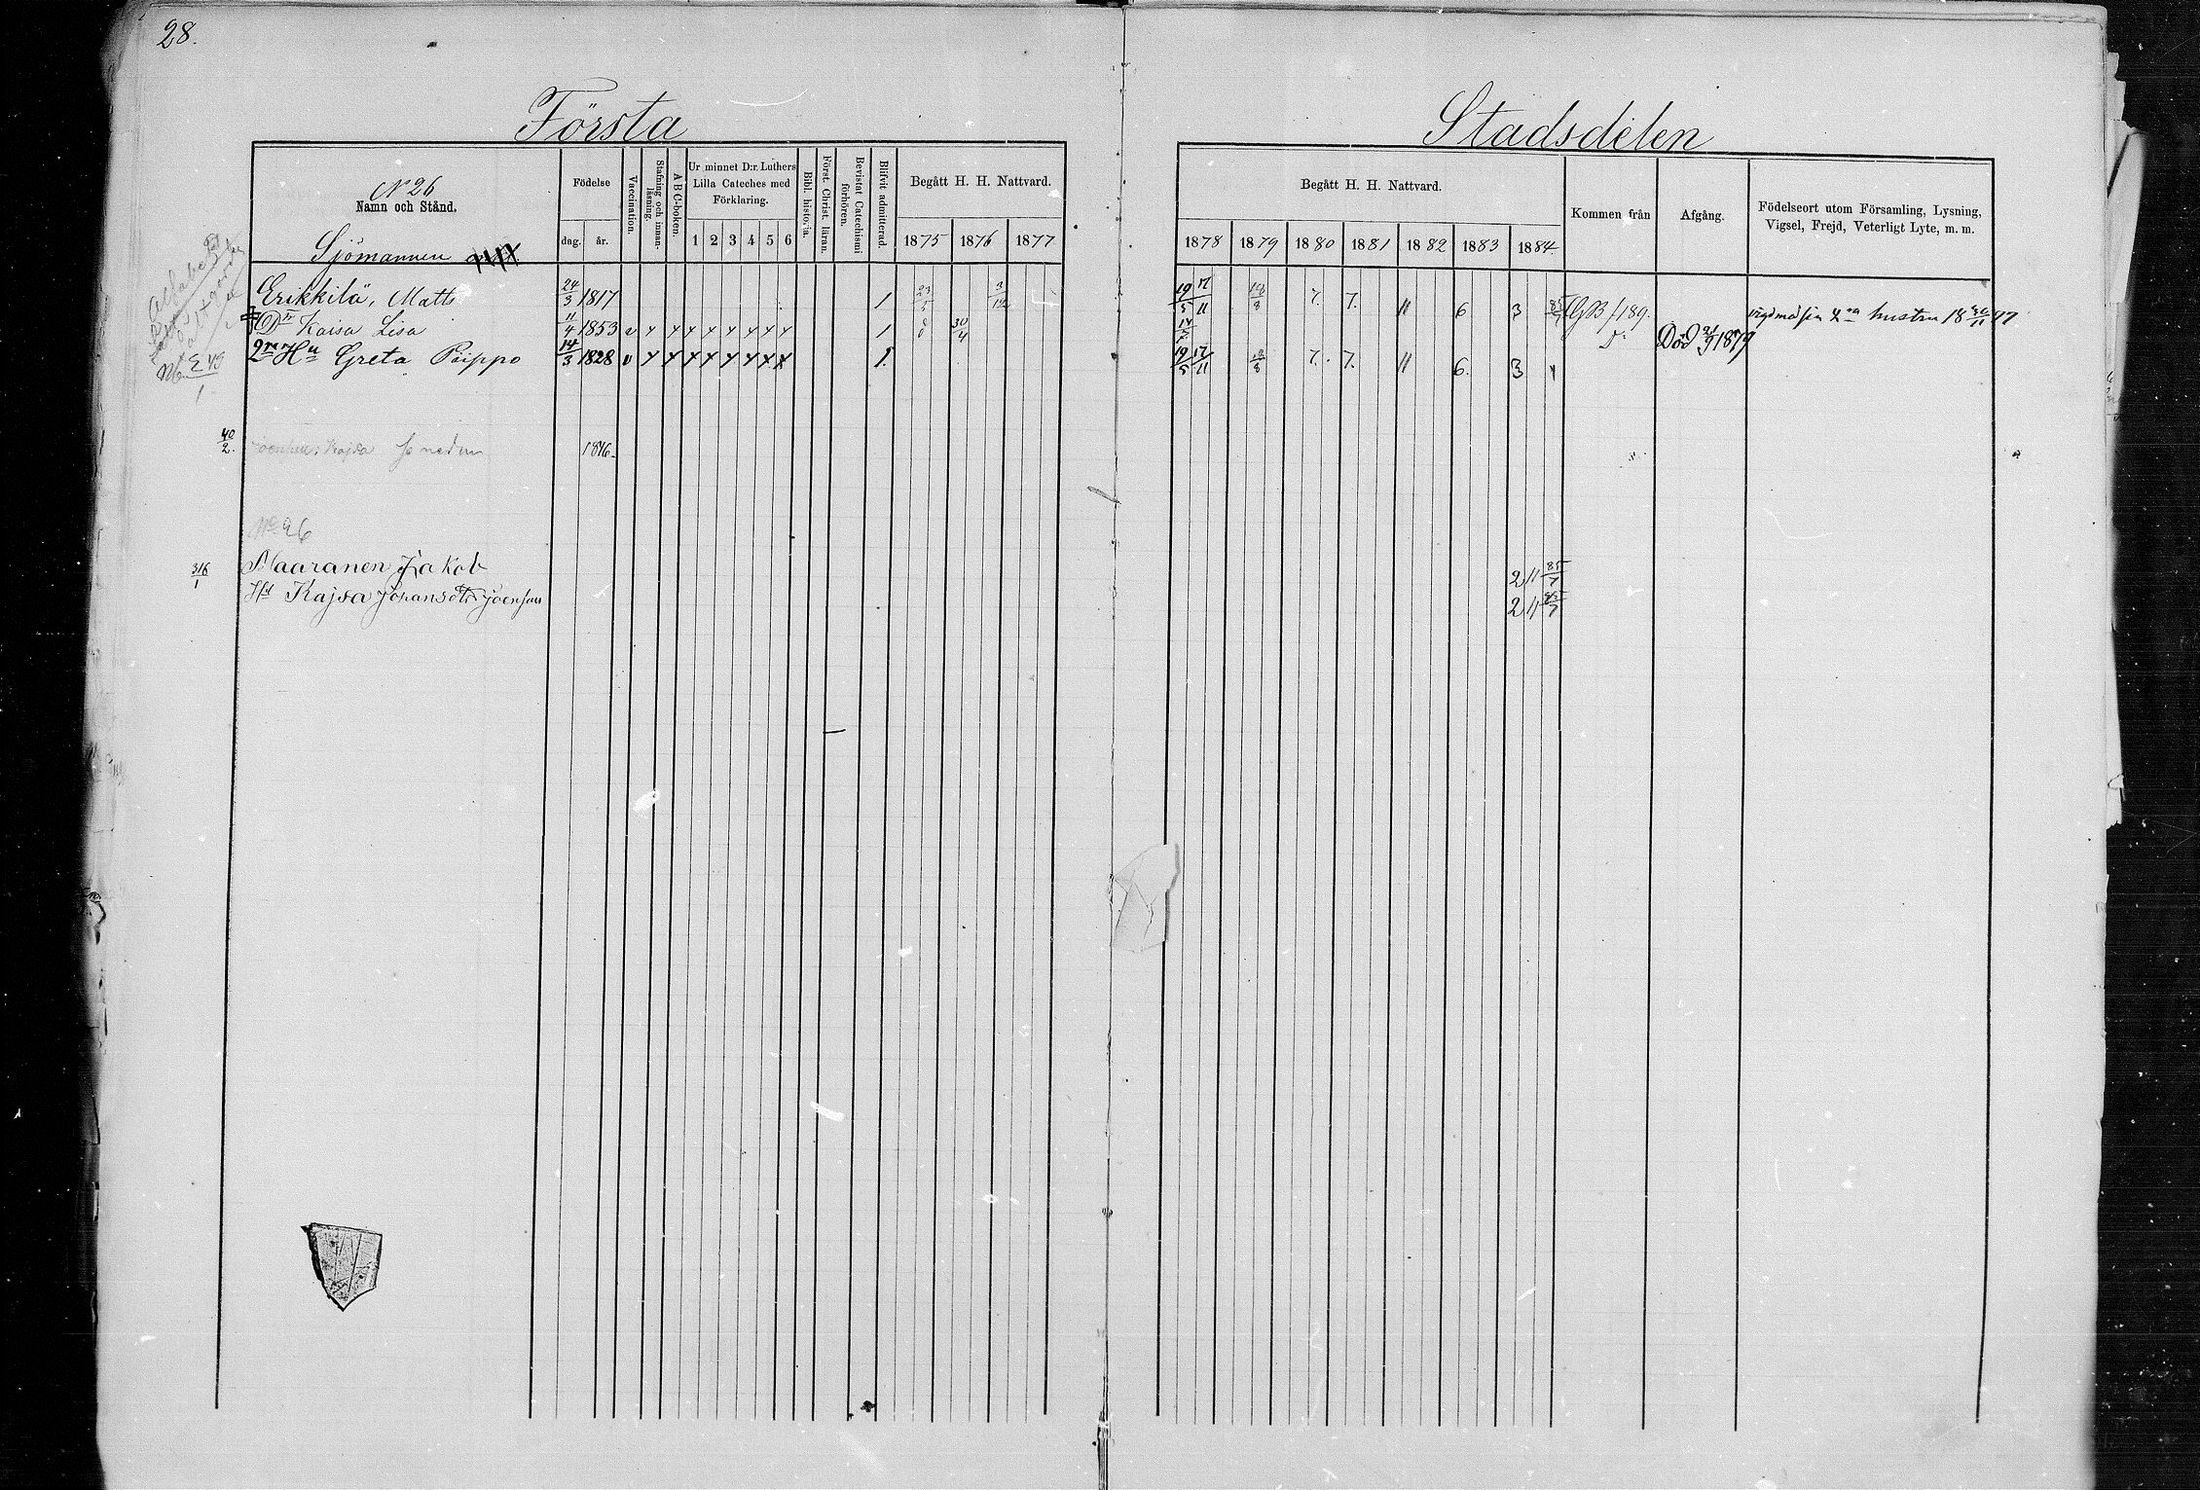 28.
Första
Stadsdelen
No 26
Namn och Stånd.
Födelse
dag. år.
Vaccination.
Stafning och innan-läsning.
A B C-boken.
Ur minnet D:r Luthers Lilla Cateches med Förklaring.
1 2 3 4 5 6
Bibl. historia.
Först. Christ. läran.
Bevistat Catechismi förhören.
Blifvit admitterad.
Begått H. H. Nattvard.
1875 1876 1877
Begått H. H. Nattvard.
1878 1879 1880 1881 1882 1883 1884
Kommen från
Afgång.
Födelseort utom Församling, Lysning, Vigsel, Frejd, Veterligt Lyte, m. m.
Sjömannen
Erikkilä, Matts 24/3 1817 1 23/5 3/12 19/5 17/11 7. 7. 11 6 3 GB/189. vigd med sin 2:a hustru 18 30/11 77
Dr Kaisa Lisa 11/4 1853 v x x x x x x x x 1 30/4 Död 21/9 1879
2:ra Hu Greta Piippo 14/3 1828 v x x x x x x x x 1. 19/5 17/11 7. 7. 11 6. 3
40/2. Kajsa 1846.
No 26
316/1 Maaranen Jakob 2 11 85/7
Hu Kajsa Johansdtr Joenhuu 2 11 85/7